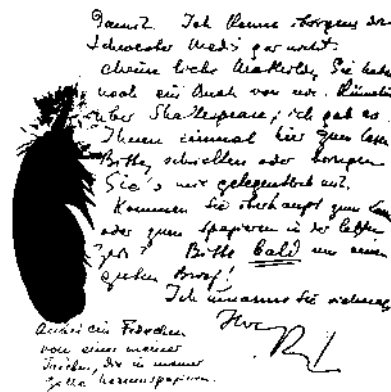 Damit. Ich kenne übrigens den
Schwester gar nicht.
liebe Mathilde, Sie haben
noch ein Buch von mir.
über Shakespeare; ich gab es
Ihnen einmal hier zum lesen
Bitte, schicken oder bringen
Sie's mir gelegentlich mit.
Kommen Sie überhaupt zum
oder zum spazieren in der letzten
Zeit? Bitte bald um einen
guten Brief!
Ich umarme Sie vielmals
Ihre
R
Anbei ein Federchen
von einer meiner
Tauben, die in meiner
Zelle herumspazieren.